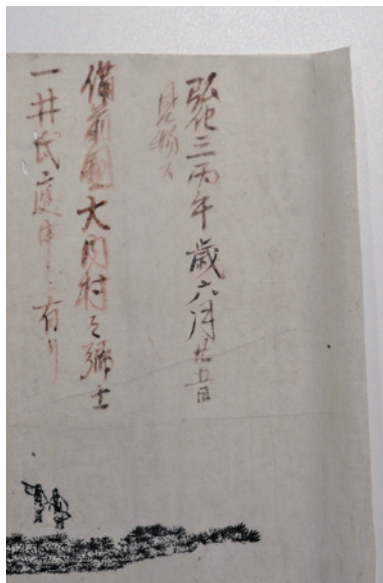 弘化三丙午歳六月廿五日
見物人
備前國大内村之郷士
一井氏庭中ニ有り